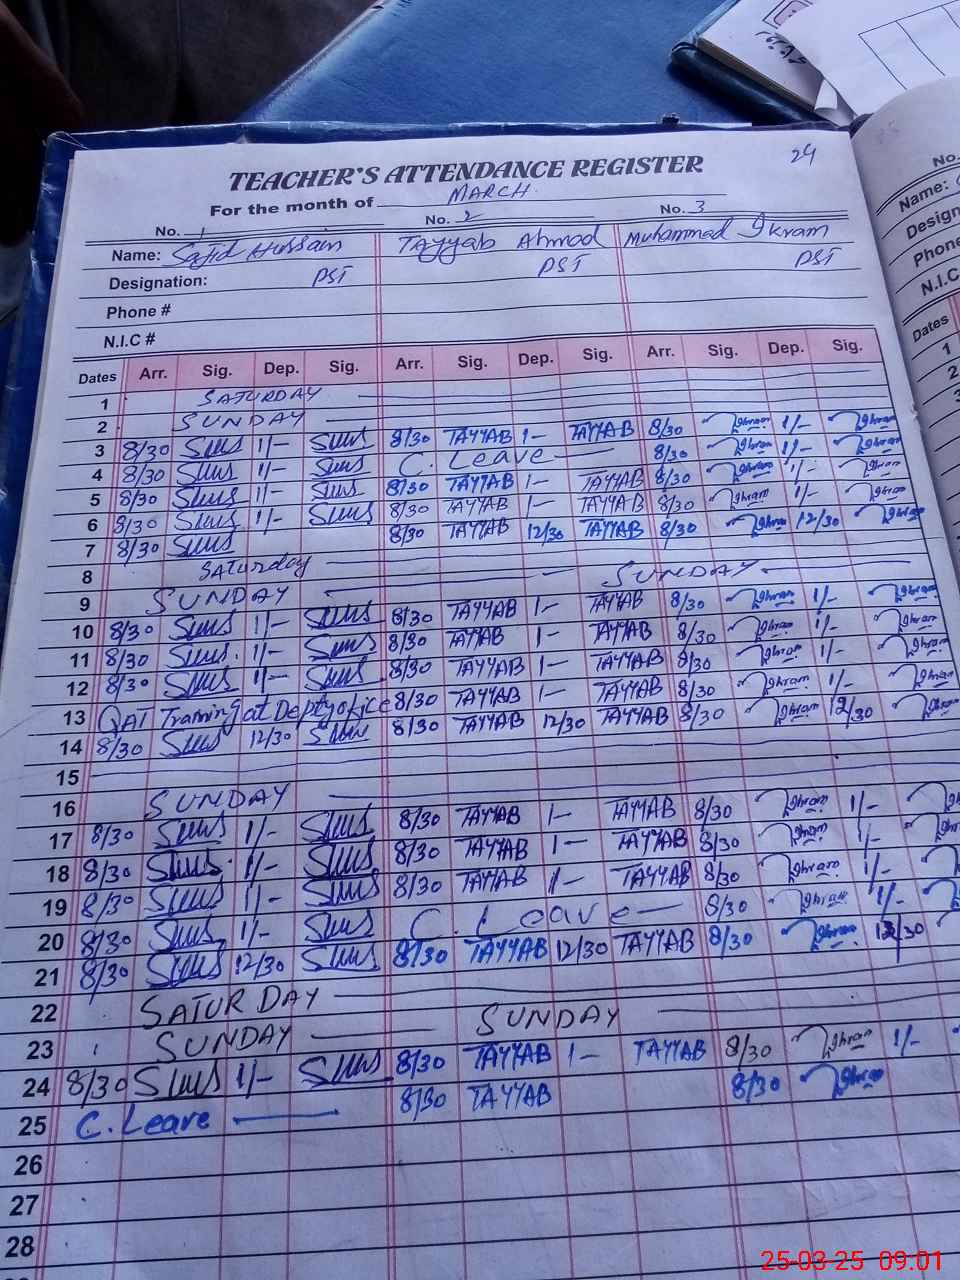 24
TEACHER'S ATTENDANCE REGISTER
For the month of MARCH.
No. 1 No. 2 No. 3
Name: Sajid Hussain TAyyab Ahmad Muhammad Ikram
Designation: PST PST PST
Phone #
N.I.C #
Dates Arr. Sig. Dep. Sig. Arr. Sig. Dep. Sig. Arr. Sig. Dep. Sig.
1 SATURDAY
2 SUNDAY
3 8/30 1/- 8/30 TAYYAB 1- TAYYAB 8/30 Ikram 1/- Ikram
4 8/30 1/- C. Leave 8/30 Ikram 1/- Ikram
5 8/30 1/- 8/30 TAYYAB 1- TAYYAB 8/30 Ikram 1/- Ikram
6 8/30 1/- 8/30 TAYYAB 1- TAYYAB 8/30 Ikram 1/- Ikram
7 8/30 8/30 TAYYAB 12/30 TAYYAB 8/30 Ikram 12/30 Ikram
8 Saturday
9 SUNDAY SUNDAY
10 8/30 1/- 8/30 TAYYAB 1- TAYYAB 8/30 Ikram 1/- Ikram
11 8/30 1/- 8/30 TAYYAB 1- TAYYAB 8/30 Ikram 1/- Ikram
12 8/30 1/- 8/30 TAYYAB 1- TAYYAB 8/30 Ikram 1/- Ikram
13 QAT Training at Depty office 8/30 TAYYAB 1- TAYYAB 8/30 Ikram 1/- Ikram
14 8/30 12/30 8/30 TAYYAB 12/30 TAYYAB 8/30 Ikram 12/30 Ikram
15
16 SUNDAY
17 8/30 1/- 8/30 TAYYAB 1- TAYYAB 8/30 Ikram 1/-
18 8/30 1/- 8/30 TAYYAB 1- TAYYAB 8/30 Ikram 1/-
19 8/30 1/- 8/30 TAYYAB 1- TAYYAB 8/30 Ikram 1/-
20 8/30 1/- C. Leave 8/30 Ikram 1/-
21 8/30 12/30 8/30 TAYYAB 12/30 TAYYAB 8/30 Ikram 12/30
22 SATURDAY
23 SUNDAY SUNDAY
24 8/30 1/- 8/30 TAYYAB 1- TAYYAB 8/30 Ikram 1/-
25 C. Leave 8/30 TAYYAB 8/30 Ikram
26
27
28
No.
Name:
Design
Phone
N.I.C
Dates
1
2
25-03-25 09:01